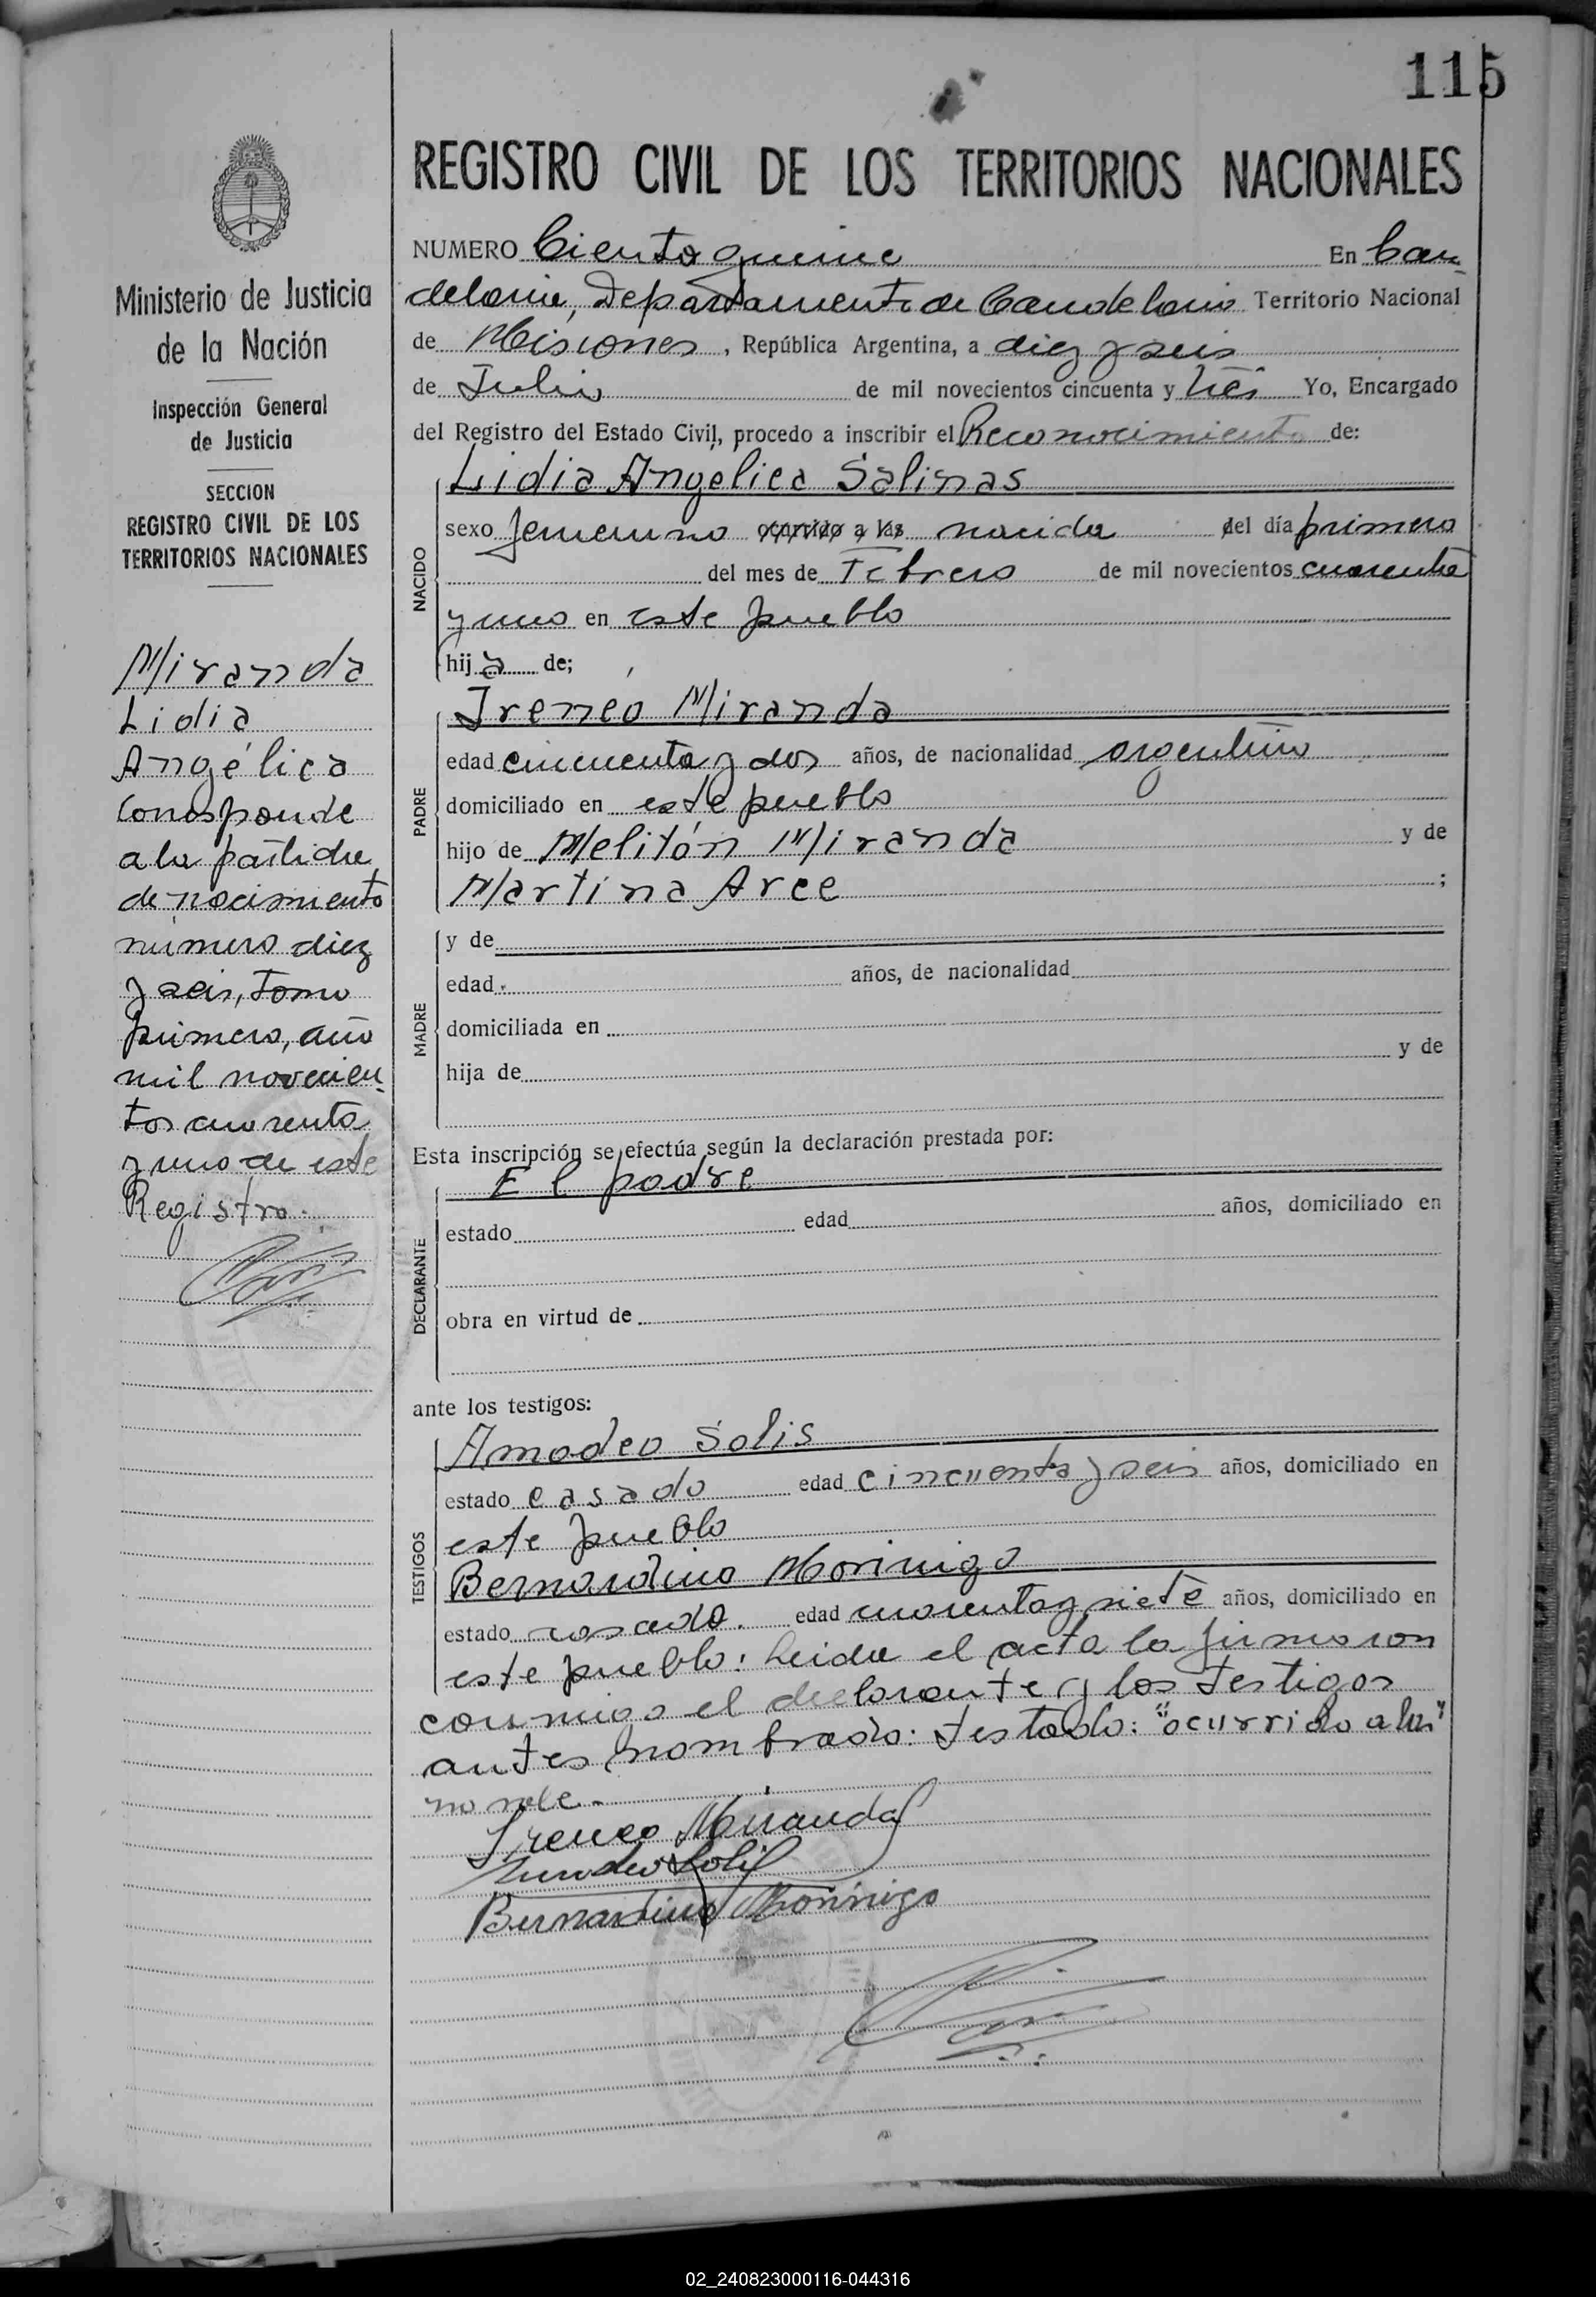 115
REGISTRO CIVIL DE LOS TERRITORIOS NACIONALES
Ministerio de Justicia
de la Nación
Inspección General
de Justicia
SECCION
REGISTRO CIVIL DE LOS
TERRITORIOS NACIONALES
Miranda
Lidia
Angélica
Corresponde
a la partida
de nacimiento
número diez
y seis, Tomo
primero, año
mil novecien-
tos cuarenta
y uno de este
Registro.
NUMERO Ciento quince En Can-
delaria, Departamento de Candelaria Territorio Nacional
de Misiones, República Argentina, a diez y seis
de Julio de mil novecientos cincuenta y tres Yo, Encargado
del Registro del Estado Civil, procedo a inscribir el Reconocimiento de:
Lidia Angélica Salinas
NACIDO
sexo femenino ocurrido a las nacida del día primero
del mes de Febrero de mil novecientos cuarenta
y uno en este pueblo
hija de;
Ireneo Miranda
PADRE
edad cincuenta y dos años, de nacionalidad argentino
domiciliado en este pueblo
hijo de Melitón Miranda y de
Martina Arce ;
MADRE
y de
edad años, de nacionalidad
domiciliada en
hija de y de
Esta inscripción se efectúa según la declaración prestada por:
El padre
DECLARANTE
estado edad años, domiciliado en
obra en virtud de
ante los testigos:
Amadeo Solis
TESTIGOS
estado casado edad cincuenta y seis años, domiciliado en
este pueblo
Bernardino Morinigo
estado casado. edad cuarenta y siete años, domiciliado en
este pueblo: Leida el acta la firmaron
conmigo el declarante y los testigos
antes nombrado: testado: "ocurrido a las"
no vale.
Ireneo Miranda
Amadeo Solis
Bernardino Morinigo
02_240823000116-044316